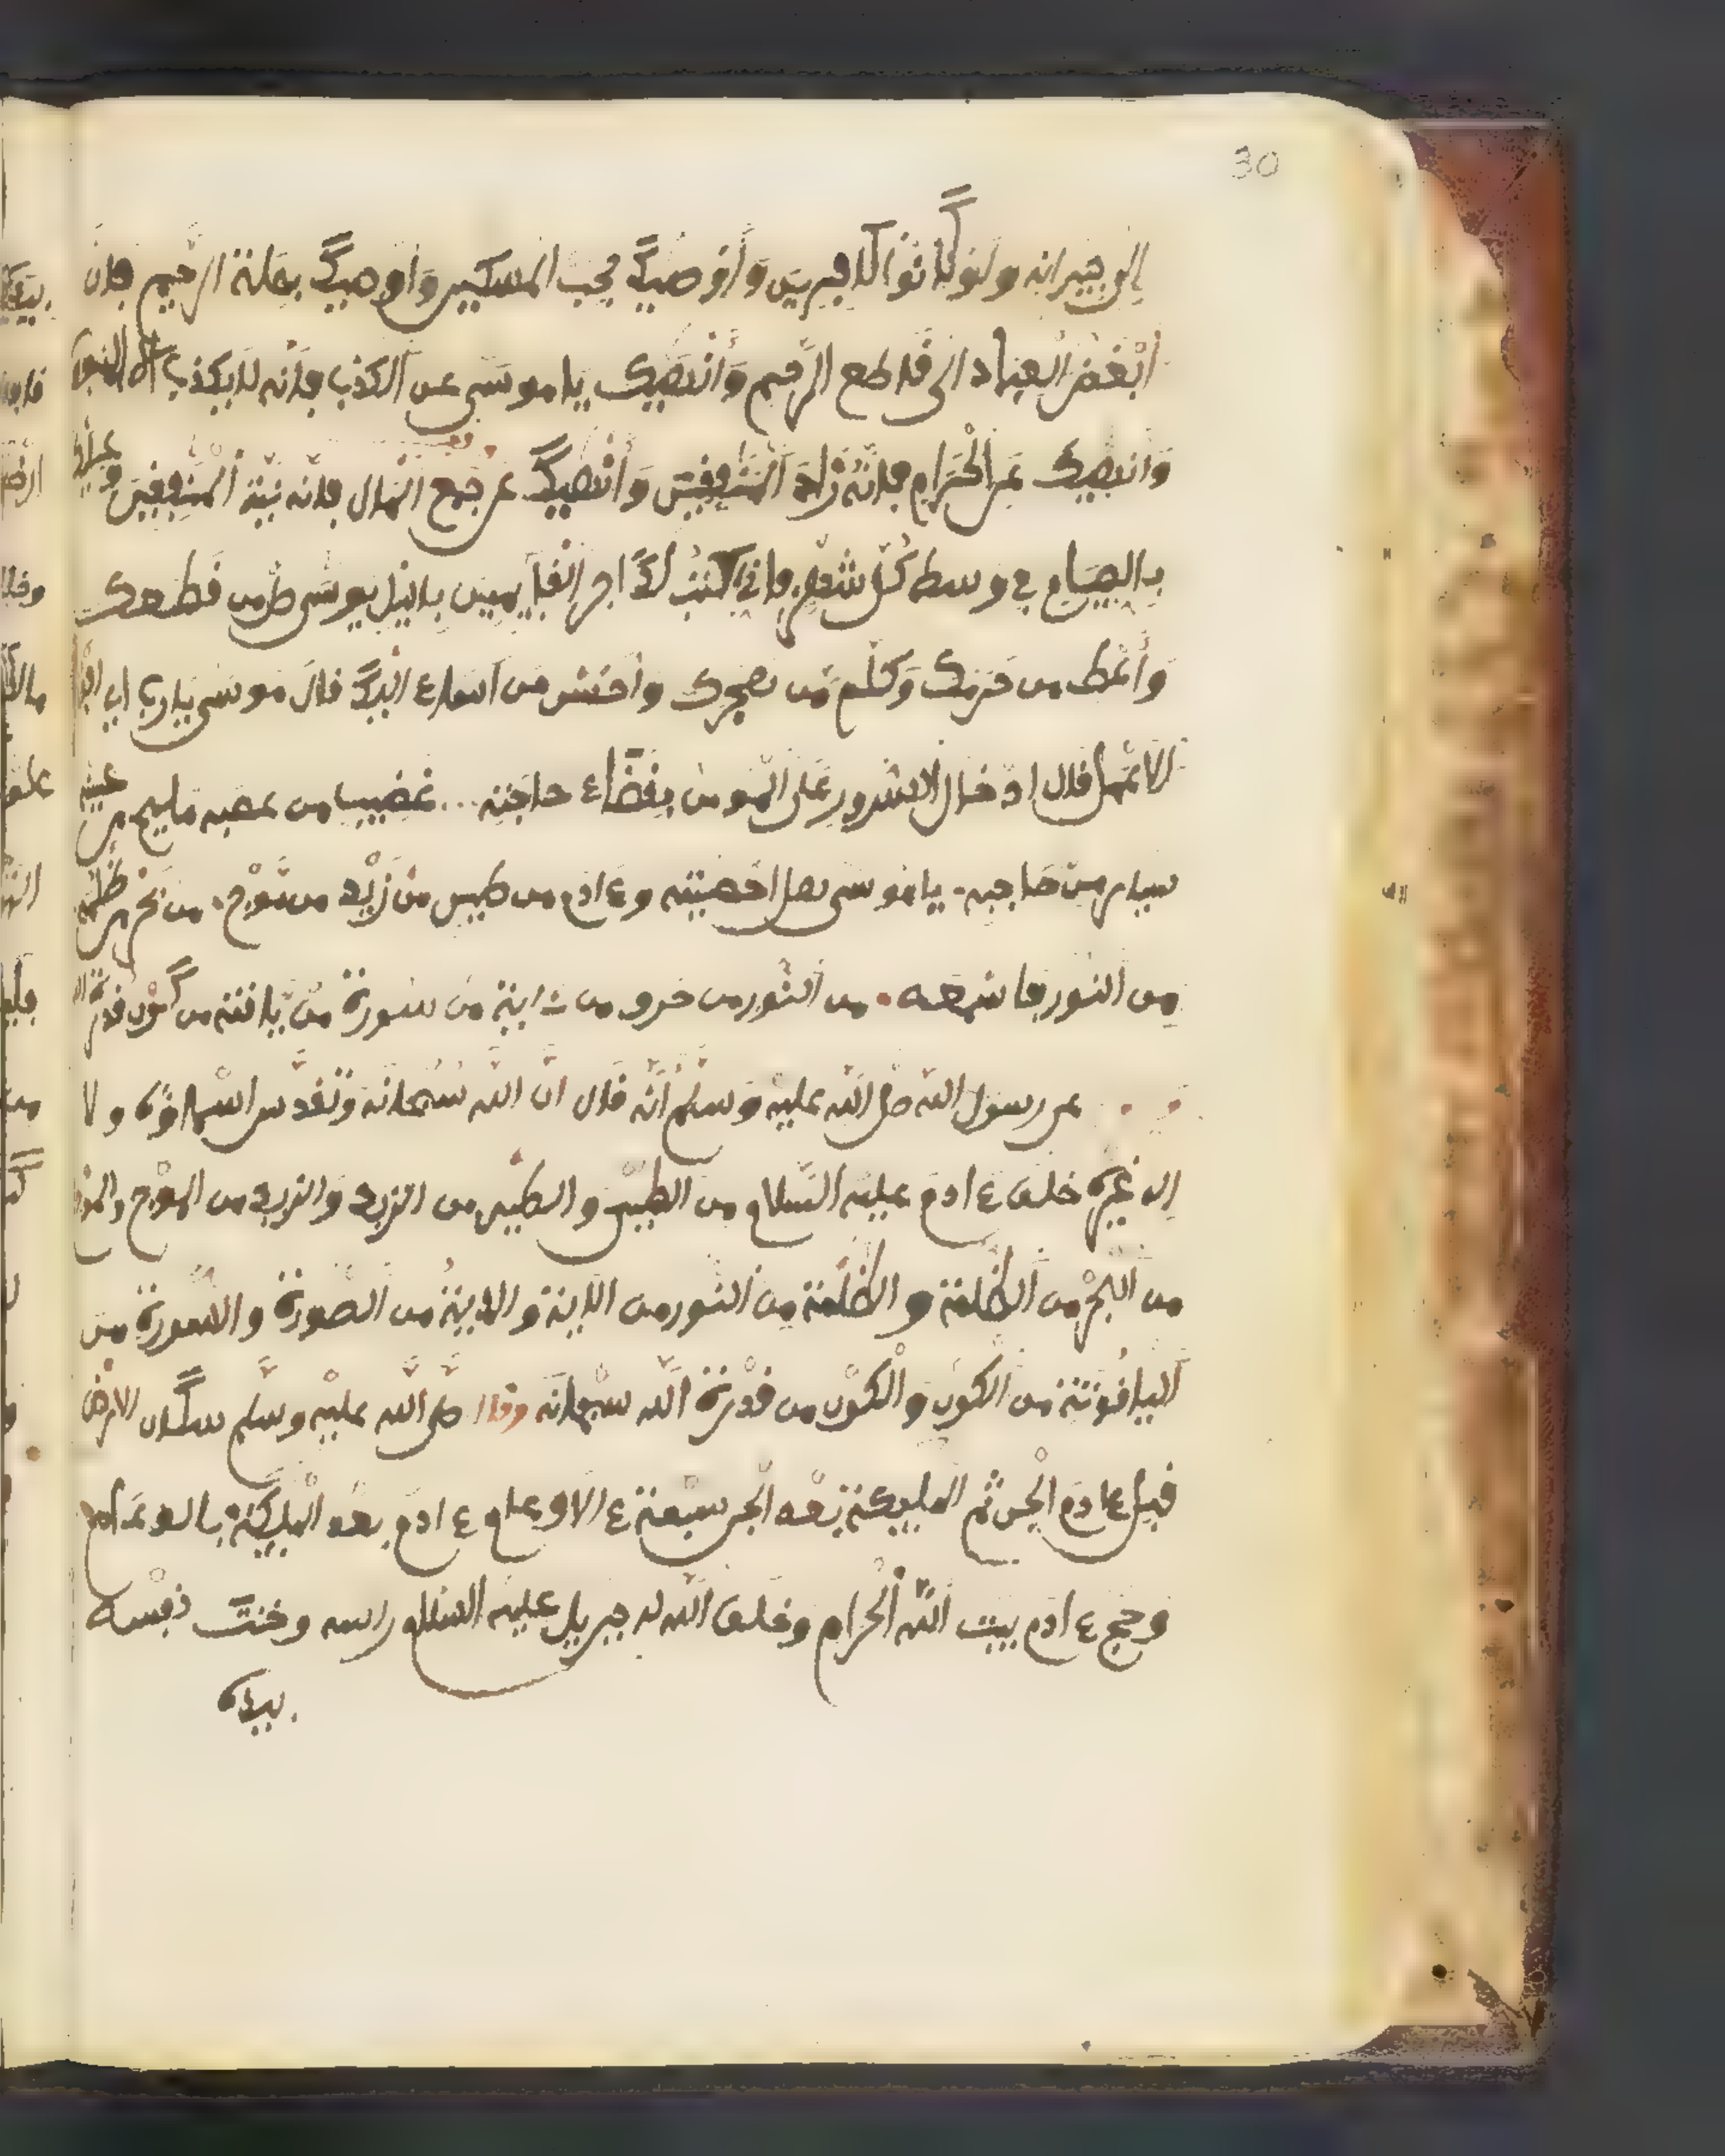 30
إلى جيرانه ولو كانوا كافرين وأوصيك بحب المسكين وأوصيك بصلة الرحيم فإن
أبغض العباد إلى قاطع الرحم وأنهيك يا موسى عن الكذب فإنه لا يكذب
وأنهيك عن الحرام فإنه زاد المنافقين وأنهيك عن جمع المال فإنه نية المنفقين
بالصيام في وسط كل شهر فإني أكتب لك أجر القايمين باليل يموسى صل من قطعك
وأعط من حرمك وكلم من هجرك وأحسن من أساء إليك قال موسى يا رب أي
الأعمال قال ادخال السرور على المومن بقضاء حاجته ... غضيب من عصبه مليح من
من صاحبه يا موسى هل احصيته وءادم من طين من زبد من موج من بحر من ظلمة
من النور من النور من حرو من ءاية من سورة من ياقتة من كون قدرة
عن رسول الله صلى الله عليه وسلم أنه قال ان الله سبحانه وتقدس اسماؤه ولا
إله غيره خلق ءادم عليه السلام من الطين والطين من الزبد والزبد من الموج والموج
من البحر من الظلمة والظلمة من النور من الاية والاية من الصورة والسورة من
الياقوتة من الكون والكون من قدرة الله سبحانه وقال صلى الله عليه وسلم سكان الارض
قبل ءادم الجن ثم المليكة بعد الجن سبعة ءالاو عام ءادم بعد المليكة بالو عام
وحج ءادم بيت الله الحرام وخلق الله له جبريل عليه السلام راسه وختن نفسه
بيده